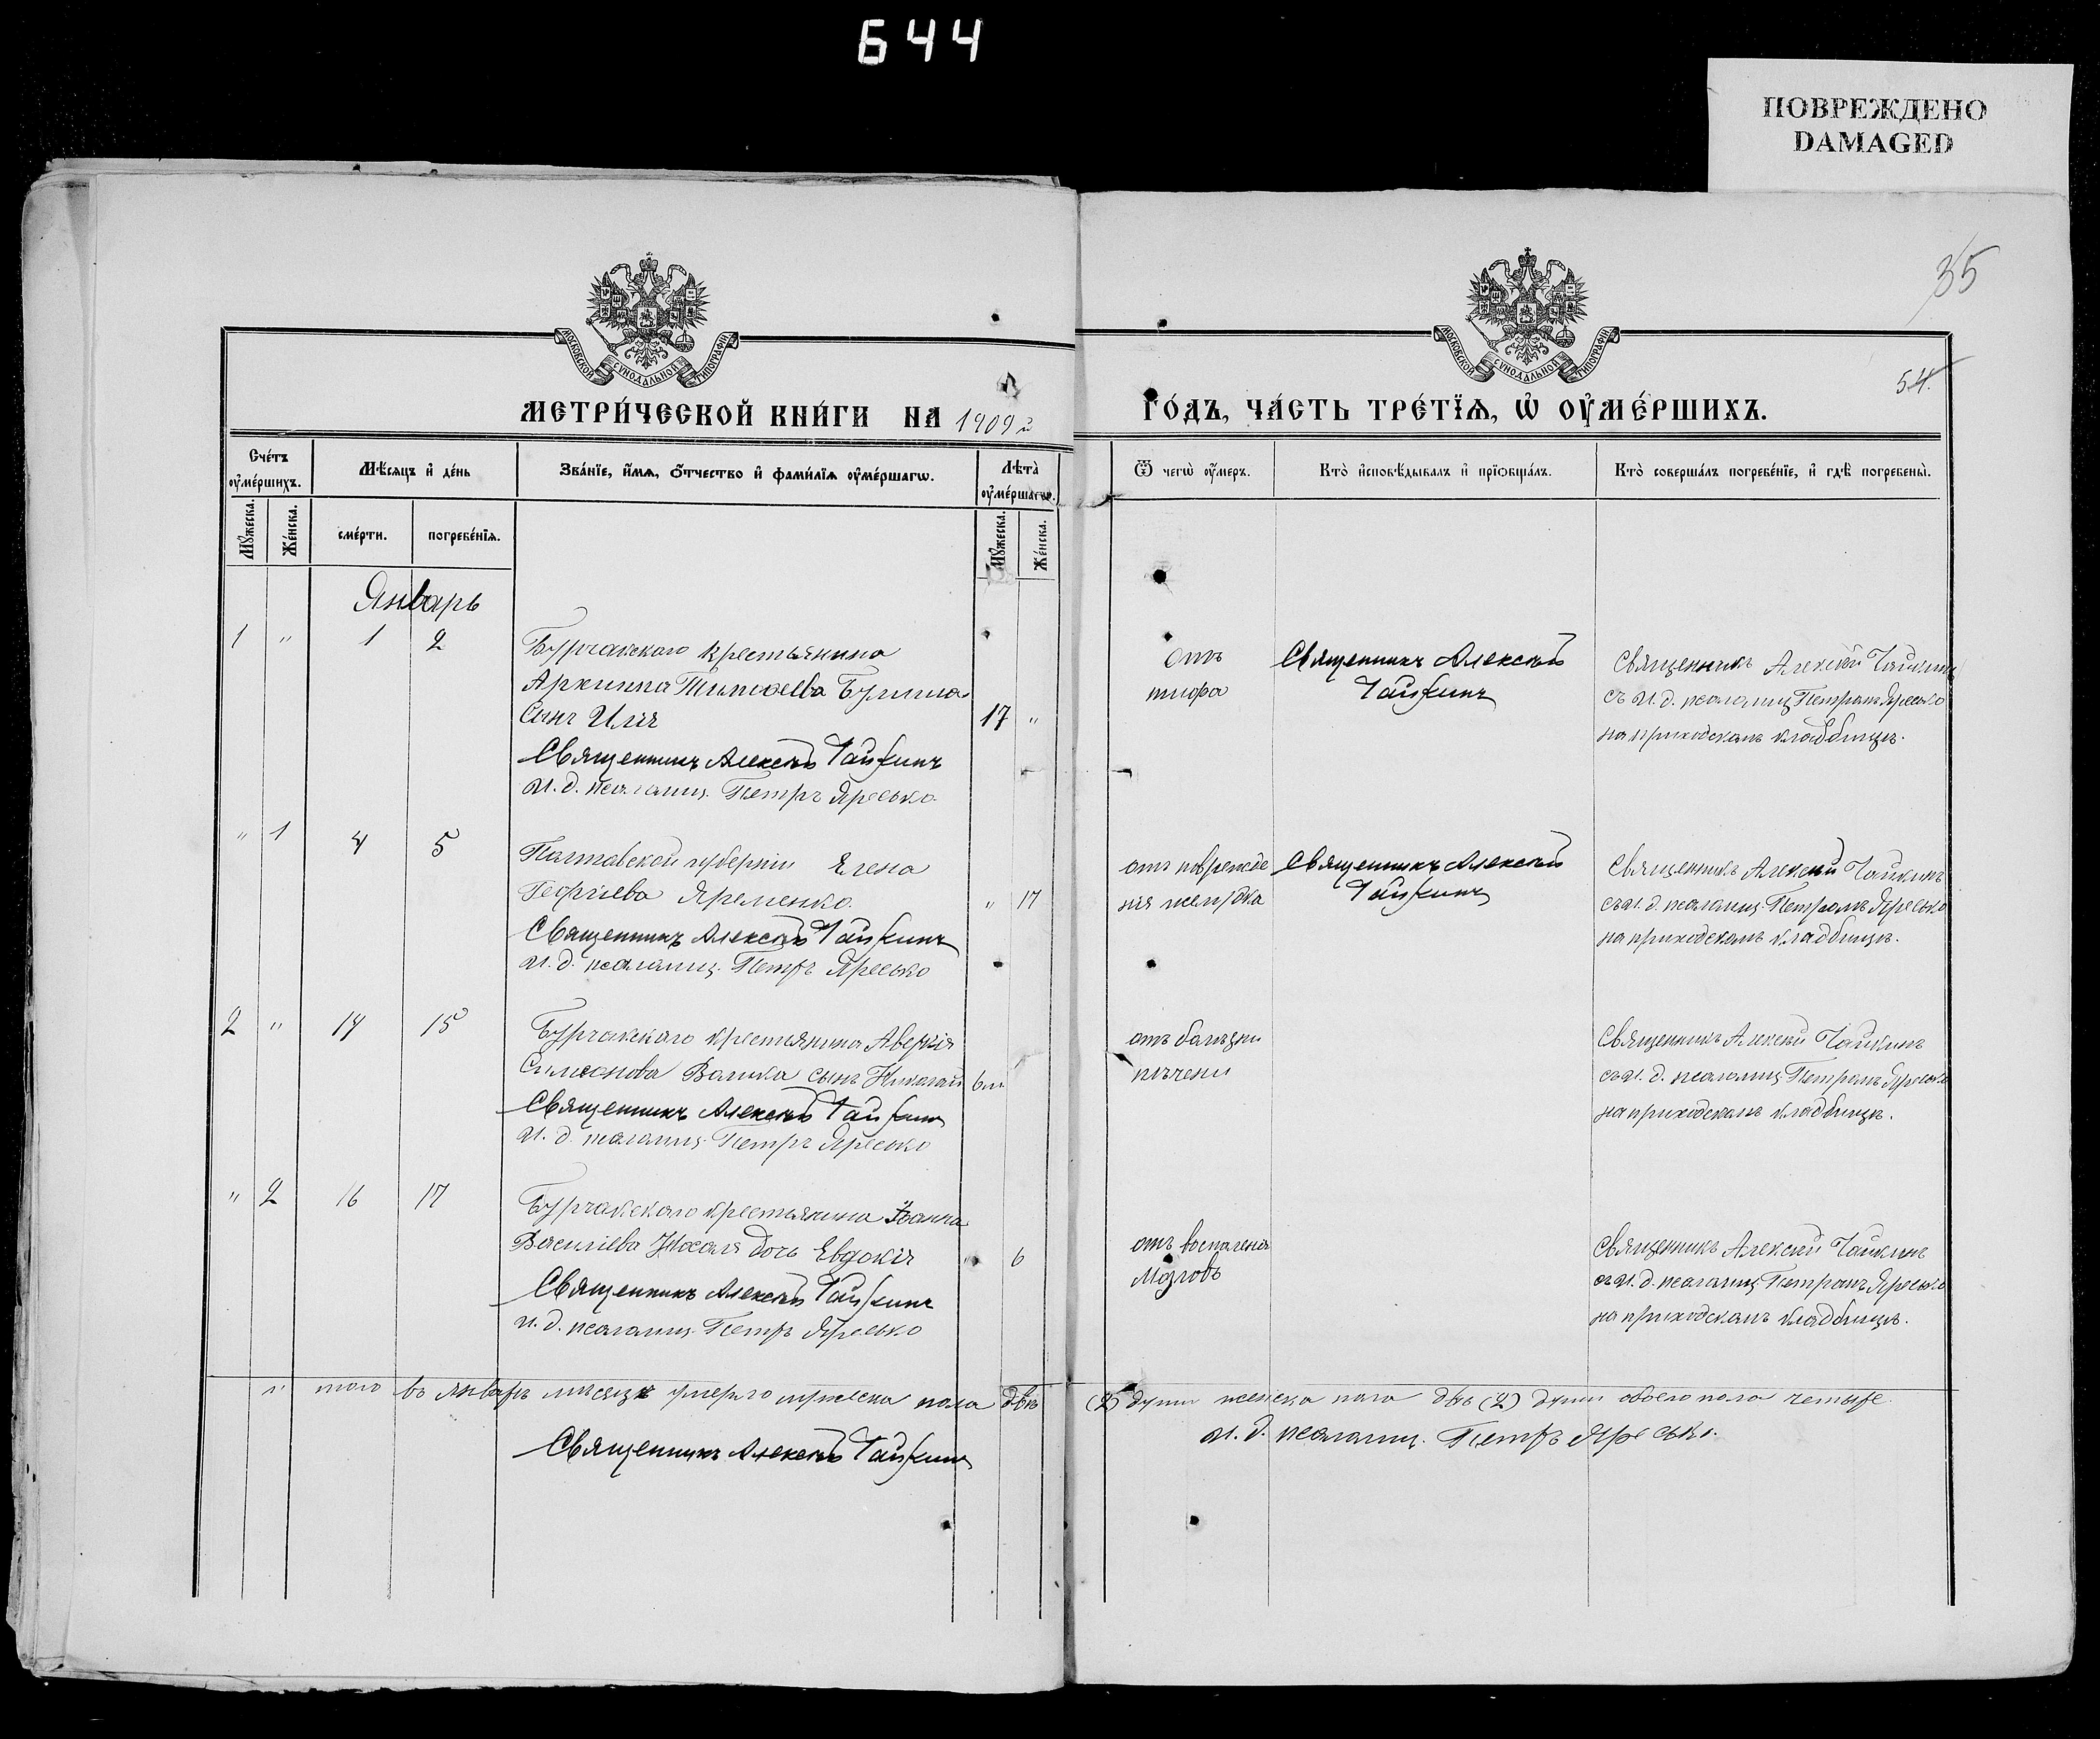 644
ПОВРЕЖДЕНО
DAMAGED
35
54.
МОСКОВСКОЙ СѴНОДАЛЬНОЙ ТИПОГРАФІИ
МОСКОВСКОЙ СѴНОДАЛЬНОЙ ТИПОГРАФІИ
МЕТРИ́ЧЕСКОЙ КНИ́ГИ НА 1909 й
ГО́ДЪ, ЧА́СТЬ ТРЕ́ТЇѦ, Ѡ҆ ОУ҆МЕ́РШИХЪ.
Сче́тъ оу҆ме́ршихъ.
Мѣ́сяцъ и҆ де́нь
Зва́нїе, и҆́мѧ, ѻ҆́тчество и҆ фами́лїѧ оу҆ме́ршагѡ.
Лѣ́та оу҆ме́ршагѡ.
Ѿ чегѡ̀ оу҆́меръ.
Кто̀ и҆сповѣ́дывалъ и҆ прїѡбща́лъ.
Кто̀ соверша́лъ погребе́нїе, и҆ гдѣ̀ погребены̀.
Мꙋ́жеска.
Же́нска.
сме́рти.
погребе́нїѧ.
Мꙋ́жеска.
Же́нска.
Январь
1 " 1 2 Бурчакского крестьянина
Архиппа Тимоѳеева
Сынъ Илія 17 "
Священникъ Алексѣй Чайкинъ
И. д. псаломщ. Петръ Яресько
Отъ
тифа
Священникъ Алексѣй
Чайкинъ
Священникъ Алексѣй Чайкинъ
съ И. д. псаломщ. Петромъ Яресько
на приходскомъ кладбищѣ.
" 1 4 5 Полтавской губерніи Елена
Георгіева Яременко. " 17
Священникъ Алексѣй Чайкинъ
И. д. псаломщ. Петръ Яресько
отъ поврежде
нія желудка
Священникъ Алексѣй
Чайкинъ
Священникъ Алексѣй Чайкинъ
съ И. д. псаломщ. Петромъ Яресько
на приходскомъ кладбищѣ.
2 " 14 15 Бурчакского крестьянина Аверкія
Симеонова Волика сынъ Николай 6м
Священникъ Алексѣй Чайкинъ
И. д. псаломщ. Петръ Яресько
отъ болѣзни
печени
Священникъ Алексѣй Чайкинъ
съ И. д. псаломщ. Петромъ Яресько
на приходскомъ кладбищѣ.
" 2 16 17 Бурчакского крестьянина Іоанна
Василіева Носаля дочь Евдокія " 6
Священникъ Алексѣй Чайкинъ
И. д. псаломщ. Петръ Яресько
отъ воспаленія
Мозговъ
Священникъ Алексѣй Чайкинъ
съ И. д. псаломщ. Петромъ Яресько
на приходскомъ кладбищѣ.
И того въ Январѣ мѣсяцѣ умерло мужеска пола двѣ (2) души женска пола двѣ (2) души обоего пола четыре.
Священникъ Алексѣй Чайкинъ
И. д. псаломщ. Петръ Яресько.